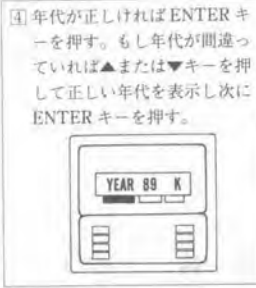 4 年代が正しければENTERキ
ーを押す。もし年代が間違っ
ていれば▲または▼キーを押
して正しい年代を表示し次に
ENTERキーを押す。
YEAR 89 K